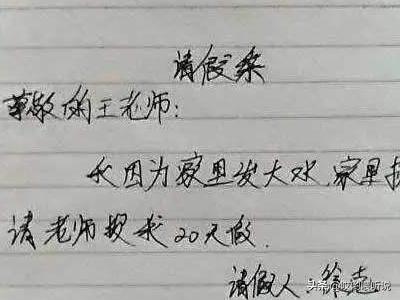 请假条
尊敬的王老师:
我因为家里发大水,家里
请老师授我20天假.
请假人:徐
头条